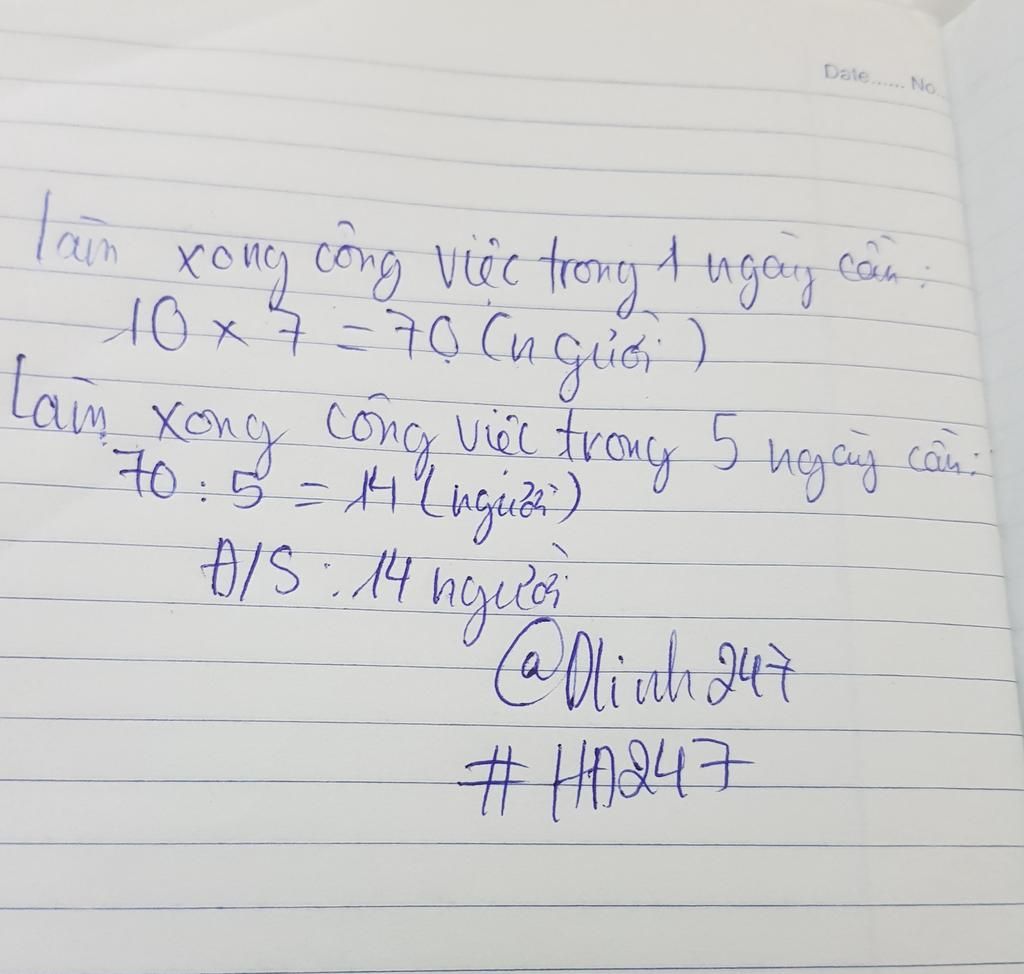 Date...... No.
Làm xong công việc trong 1 ngày cần:
10 x 7 = 70 (người)
Làm xong công việc trong 5 ngày cần:
70 : 5 = 14 (người)
Đ/S: 14 người
@Dlinh247
#HA247